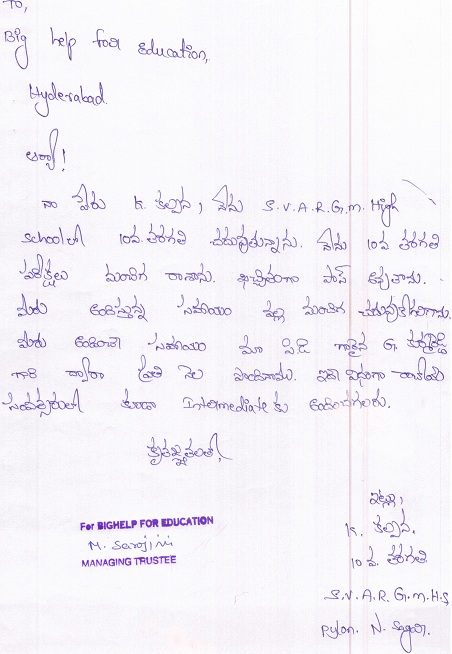 To,
Big help for Education,
Hyderabad.
ఆర్యా!
నా పేరు K. కల్పన, నేను S.V.A.R.G.M. High
School లో 10వ తరగతి చదువుతున్నాను. నేను 10వ తరగతి
పరీక్షలు మంచిగ రాసాను. ఖచ్చితంగా పాస్ అవుతాను.
మీరు అందిస్తున్న సహాయం వల్ల మంచిగ చదువుకోగలిగాను.
మీరు అందించే సహాయం మా పి.డి గారైన G.
గారి ద్వారా ప్రతి నెల పొందినాము. ఇదే విధంగా రాబోయే
సంవత్సరంలో కూడా Intermediate కు అందించగలరు.
కృతజ్ఞతలతో,
ఇట్లు,
K. కల్పన.
10 వ. తరగతి
S.V.A.R.G.M.H.S
Pylon. N. Sagar.
For BIGHELP FOR EDUCATION
M. Sarojini
MANAGING TRUSTEE